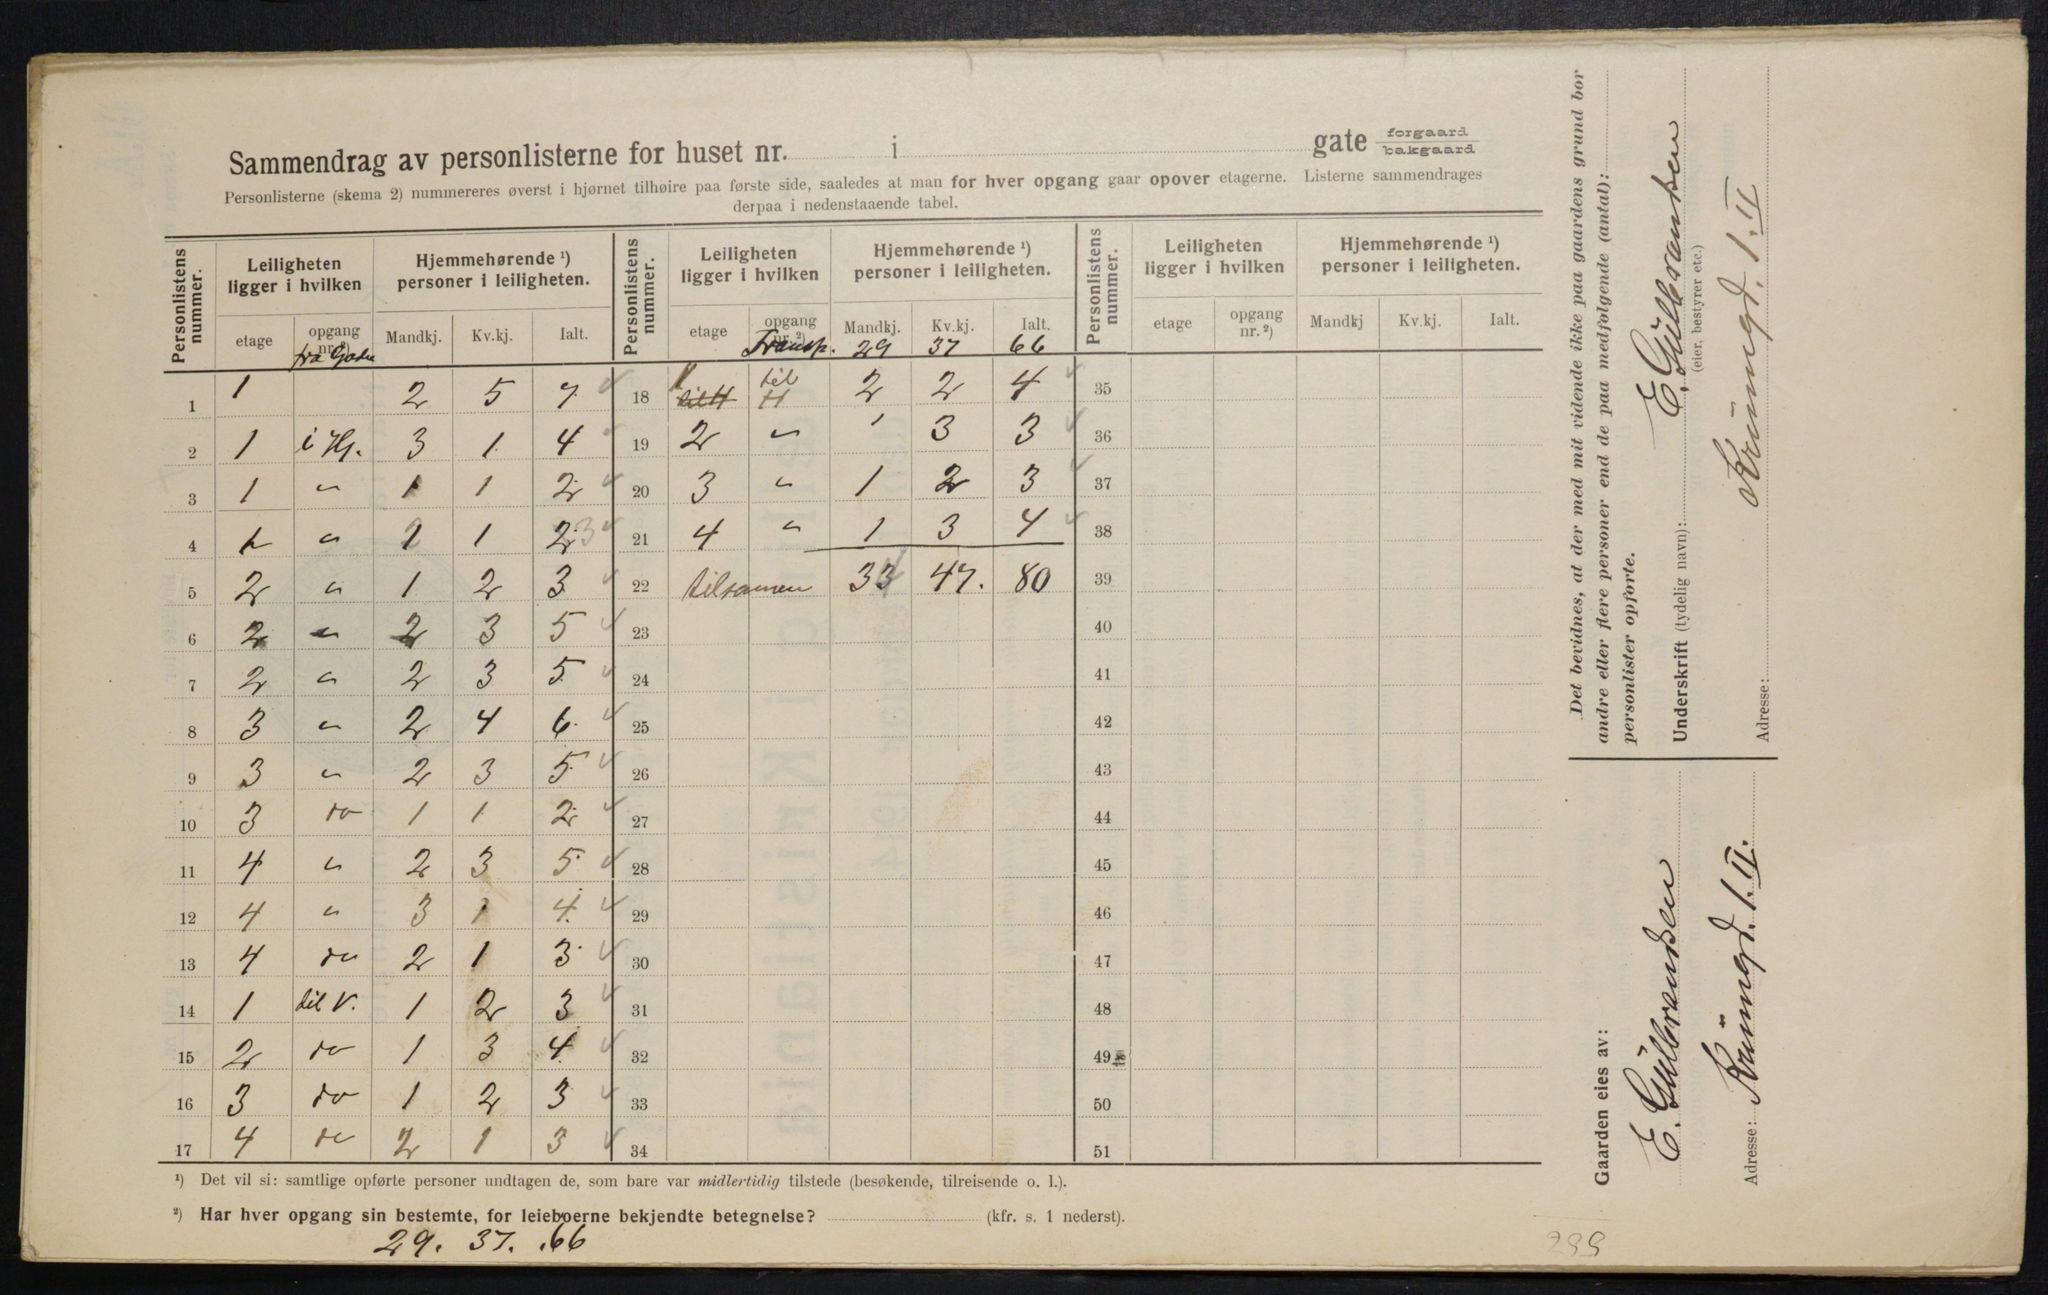 Sammendrag av personlisterne for huset nr. i gate forgaard bakgaard
Personlisterne (skema 2) nummereres øverst i hjørnet tilhøire paa første side, saaledes at man for hver opgang gaar opover etagerne. Listerne sammendrages
derpaa i nedenstaaende tabel.
Personlistens nummer. Leiligheten ligger i hvilken Hjemmehørende ¹) personer i leiligheten. Personlistens nummer. Leiligheten ligger i hvilken Hjemmehørende ¹) personer i leiligheten. Personlistens nummer. Leiligheten ligger i hvilken Hjemmehørende ¹) personer i leiligheten.
etage opgang nr.²) Mandkj. Kv.kj. Ialt. etage opgang nr.²) Mandkj. Kv.kj. Ialt. etage opgang nr.²) Mandkj Kv.kj. Ialt.
fra Gaden Transp. 29 37 66
1 1 2 5 7 18 1 til H til H 2 2 4 35
2 1 i Hj. 3 1 4 19 2 " ' 3 3 36
3 1 " 1 1 2 20 3 " 1 2 3 37
4 1 " 1 1 2 3 21 4 " 1 3 4 38
5 2 " 1 2 3 22 tilsamen 33 47. 80 39
6 2 " 2 3 5 23 40
7 2 " 2 3 5 24 41
8 3 " 2 4 6 25 42
9 3 " 2 3 5 26 43
10 3 do 1 1 2 27 44
11 4 " 2 3 5 28 45
12 4 " 3 1 4 29 46
13 4 do 2 1 3 30 47
14 1 til V. 1 2 3 31 48
15 2 do 1 3 4 32 49
16 3 do 1 2 3 33 50
17 4 do 2 1 3 34 51
¹) Det vil si: samtlige opførte personer undtagen de, som bare var midlertidig tilstede (besøkende, tilreisende o. l.).
²) Har hver opgang sin bestemte, for leieboerne bekjendte betegnelse? (kfr. s. 1 nederst).
29. 37. .66
Det bevidnes, at der med mit vidende ikke paa gaardens grund bor
andre eller flere personer end de paa medfølgende (antal):
personlister opførte.
Underskrift (tydelig navn): E. Gülbrandsen
(eier, bestyrer etc.)
Adresse: Krünegd. 1. II
Gaarden eies av:
E. Gülbrandsen
Adresse: Krünegd. 1. II.
299